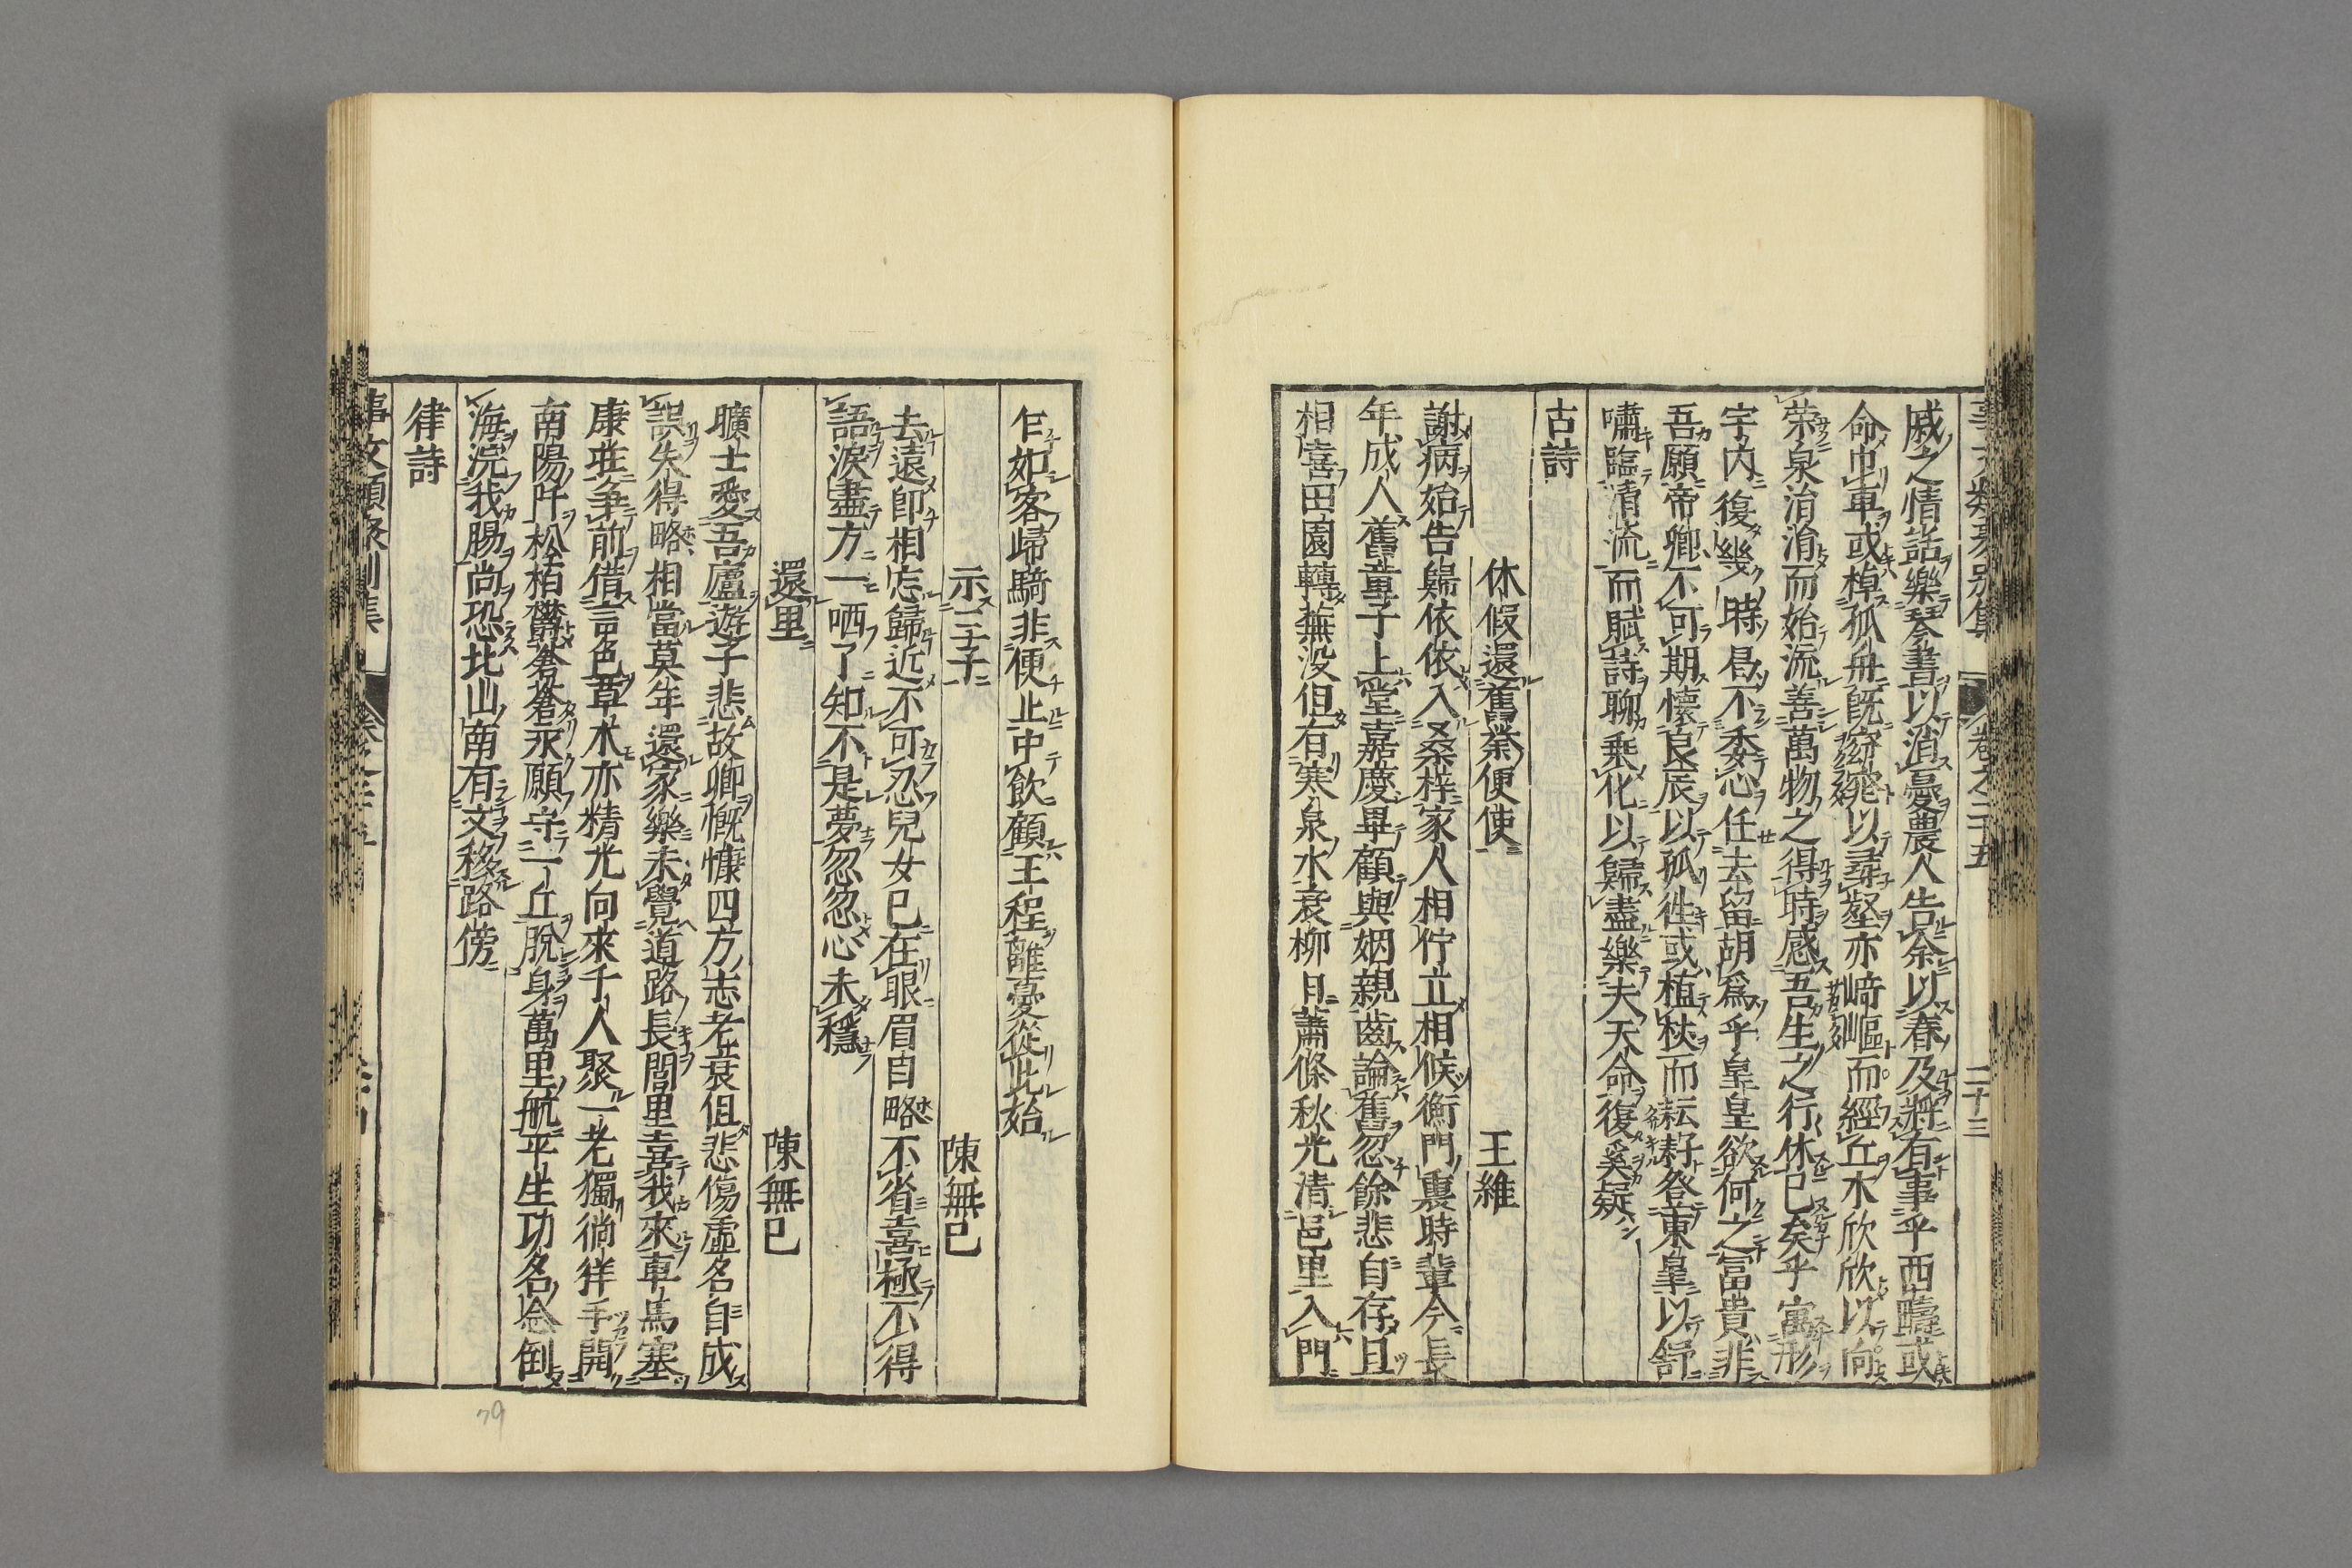 事文類聚別集 卷之二十五 二十三
戚之情話樂琴書以消憂農人告余以春及將有事乎西疇或
命巾車或棹孤舟既窈窕以尋壑亦崎嶇而經丘木欣欣以向
榮泉涓涓而始流善萬物之得時感吾生之行休已矣乎寓形
宇内復幾時曷不委心任去留胡爲乎皇皇欲何之富貴非
吾願帝鄉不可期懷良辰以孤徃或植杖而耘耔登東皐以舒
嘯臨清流而賦詩聊乘化以歸盡樂夫天命復奚疑
古詩
休假還舊業便使 王維
謝病始告歸依依入桑梓家人相佇立相候衡門裏時輩今長
年成人舊童子上堂嘉慶畢顧與姻親齒論舊忽餘悲自存且
相喜田園轉蕪没但有寒泉水衰柳日蕭條秋光清邑里入門
乍如客歸騎非便止中飲顧王程離憂從此始
示三子 陳無已
去遠即相忘歸近不可忍兒女已在眼眉目略不省喜極不得
語淚盡方一哂了知不是夢忽忽心未穩
還里 陳無已
曠士愛吾廬遊子悲故鄉慨慷四方志老衰但悲傷虛名自成
誤失得略相當莫年還家樂未覺道路長閭里喜我來車馬塞
康莊争前借言色草木亦精光向來千人聚一老獨徜徉手開
南陽阡松栢鬱蒼蒼永願守一丘脫身萬里航平生功名念倒
海浣我腸尚恐北山南有文移路傍
律詩
事文類聚別集 卷之二十五